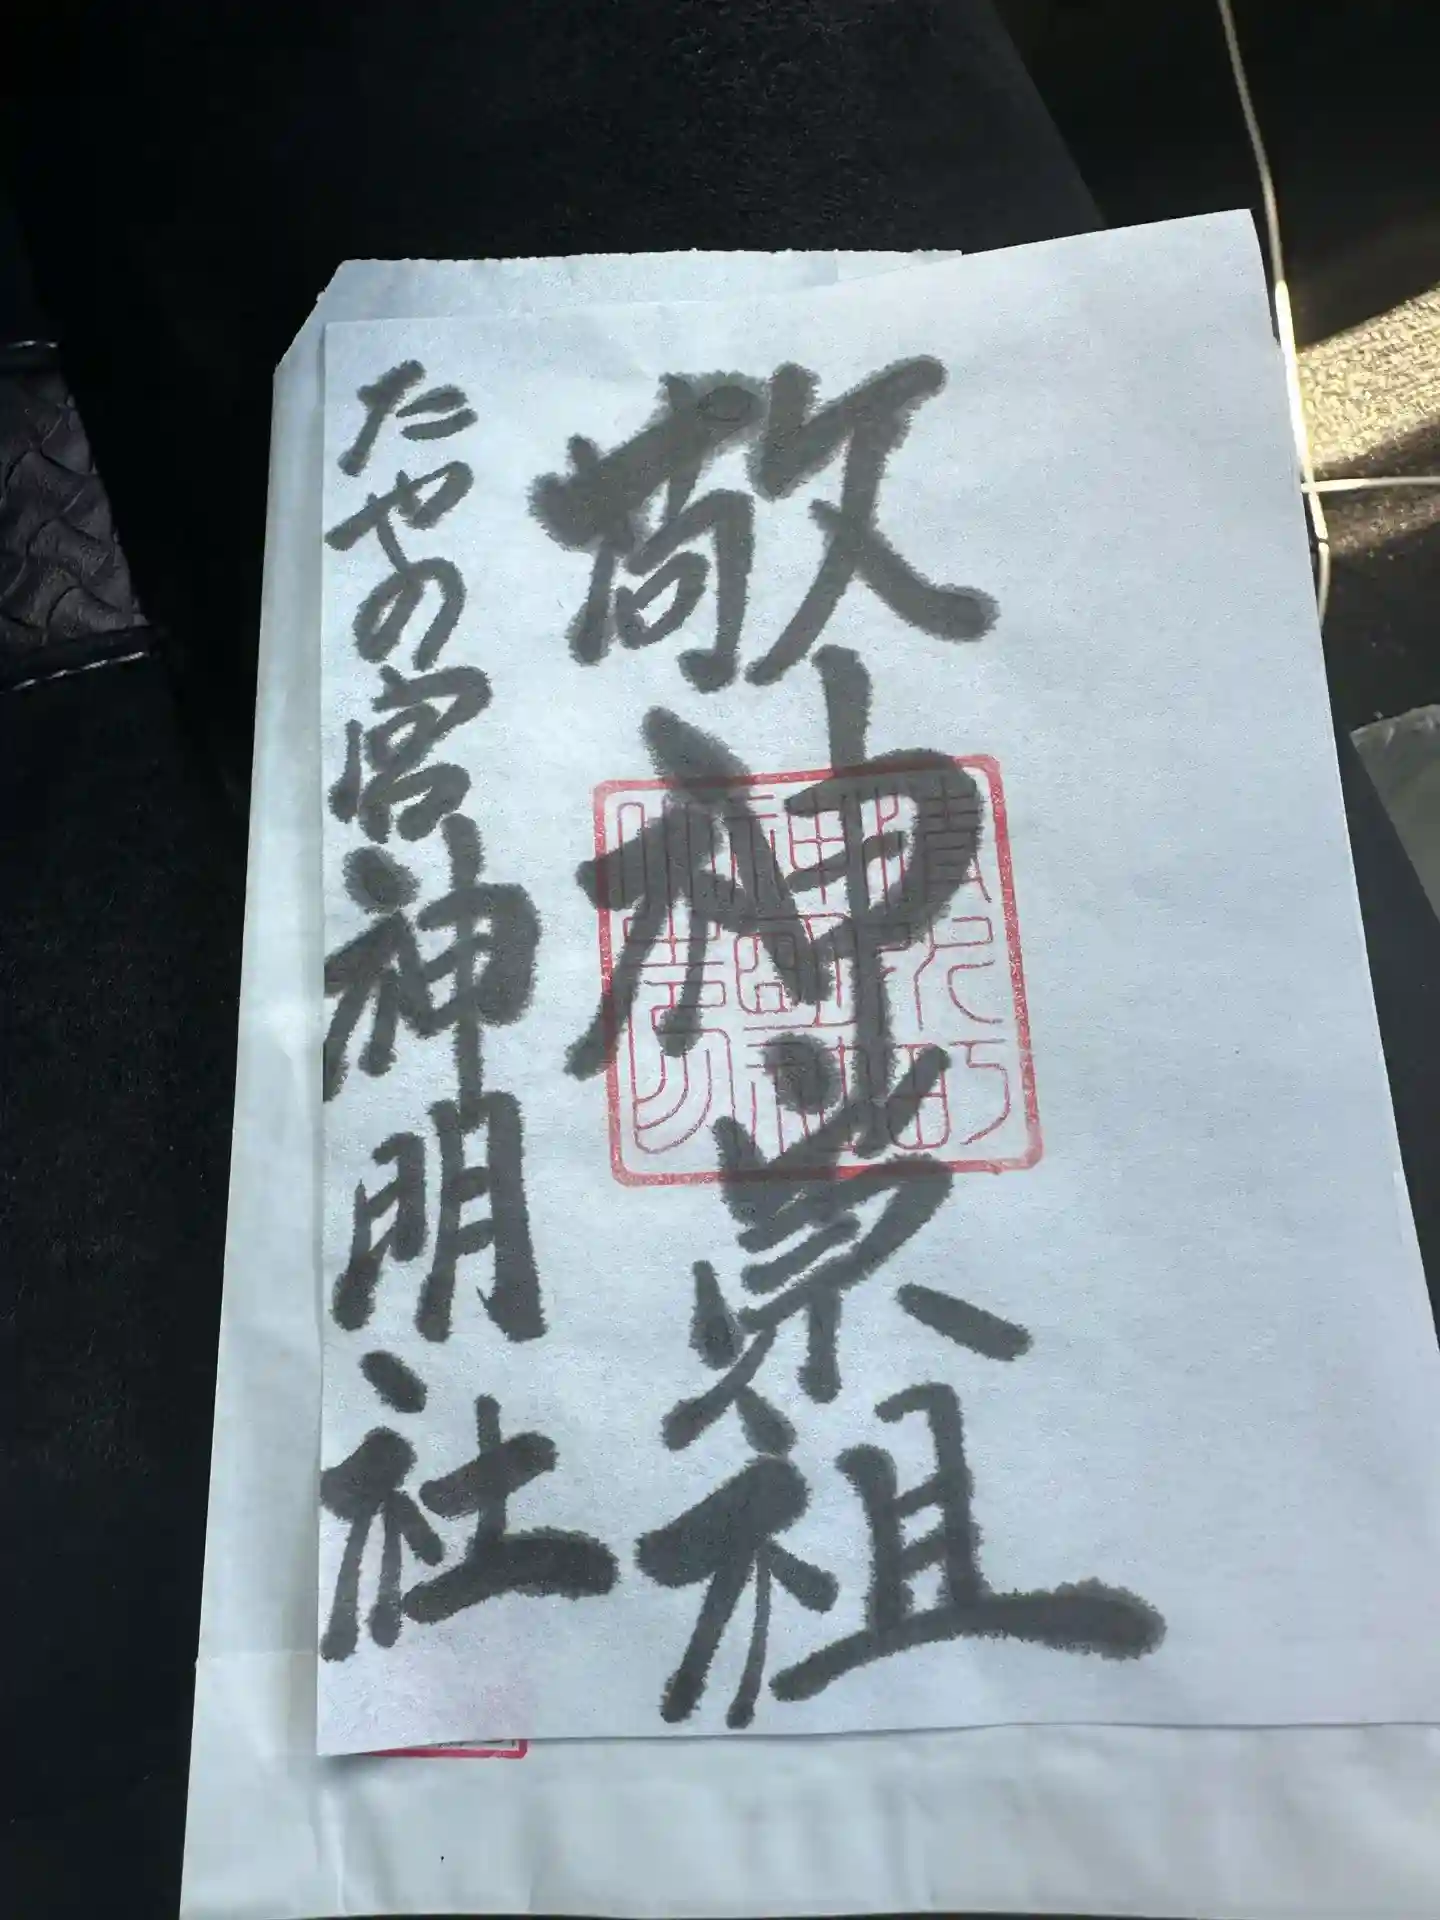 敬神崇祖
たやの宮神明社